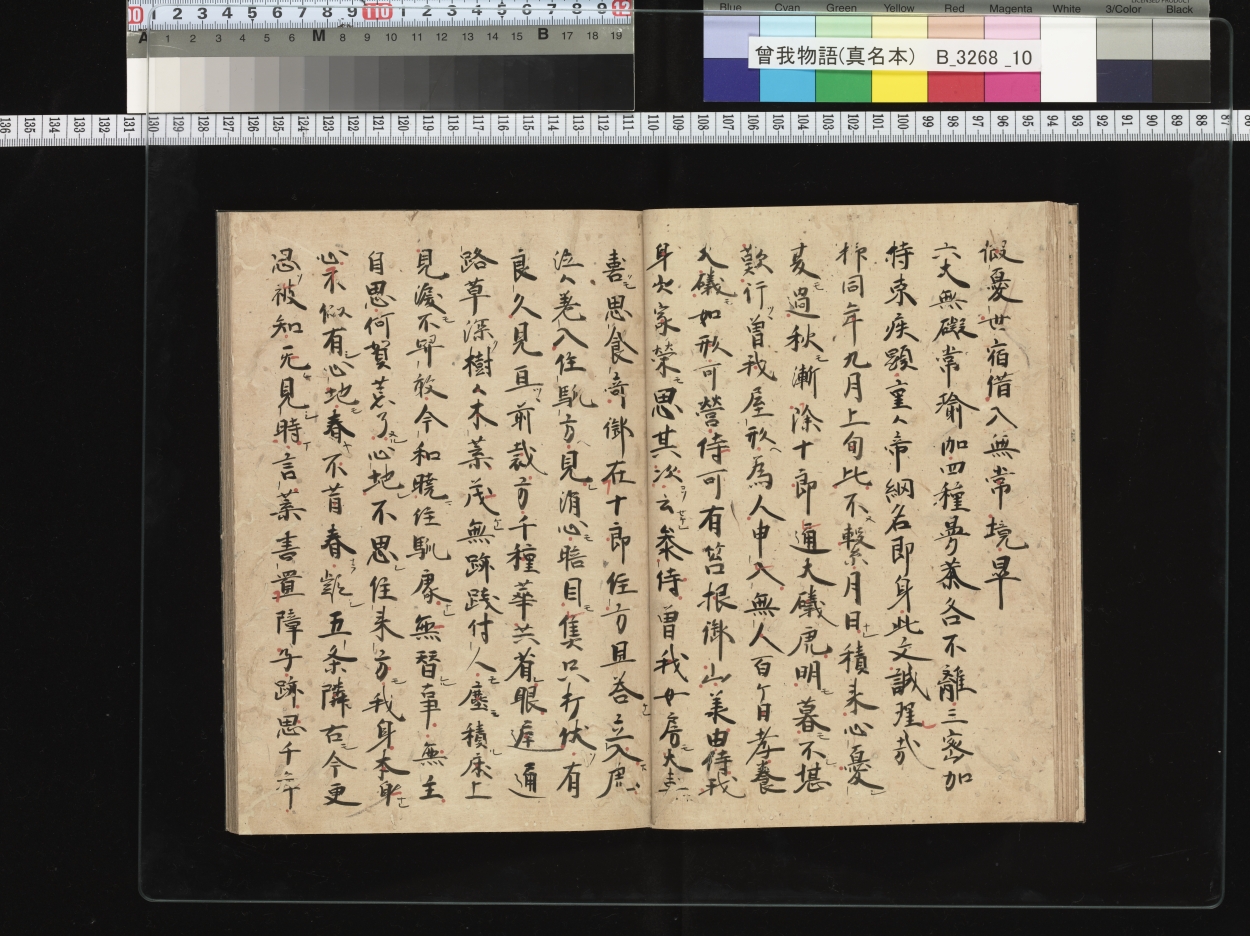 曾我物語(真名本) B_3268_10
仮憂世宿借入無常境早
六大無礙常瑜伽四種曼荼各不離三密加
持速疾顕重々帝網名即身此文誠理哉
抑同年九月上旬比不繋月日積来心憂
夏過秋漸除十郎通大礒虎明暮不堪
歎行曽我屋形為人申入無人百ケ日孝養
大礒如形可營侍可有筥根御山美由侍我
身出家榮思其次云参侍曽我女房大
喜思食奇御在十郎住方且各立入虎
泣々巻入住馴方見消心暗目隻只打伏有
良久見亘前裁方千種華共着眼庭通
路草深樹々木葉茂無跡践付人塵積床上
見渡不畢故今和曉住馴康無替事無主
自思何賀荒了心地不思住来方我身本身
心不似有心地春不昔春詠五条隣右今更
忍被知无見時言葉書置障子跡思千年